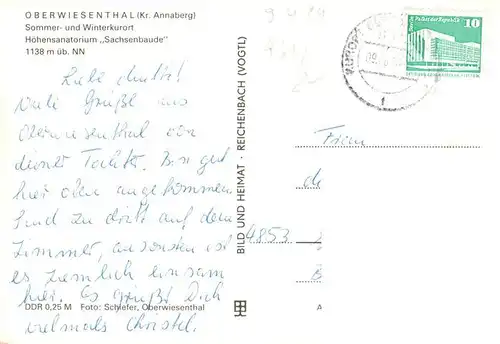 OBERWIESENTHAL (Kr. Annaberg)
Sommer- und Winterkurort
Höhensanatorium „Sachsenbaude"
1138 m üb. NN
Liebe Mutti!
Viele Grüße aus
Oberwiesenthal von
deiner Tochter. Bin gut
hier oben angekommen.
Sind zu dritt auf dem
Zimmer, ansonsten ist
es ziemlich einsam
hier. Es grüßt Dich
vielmals Christel.
DDR 0,25 M Foto: Schlefer, Oberwiesenthal
BILD UND HEIMAT · REICHENBACH (VOGTL)
KURORT
Palast der Republik
10
4853